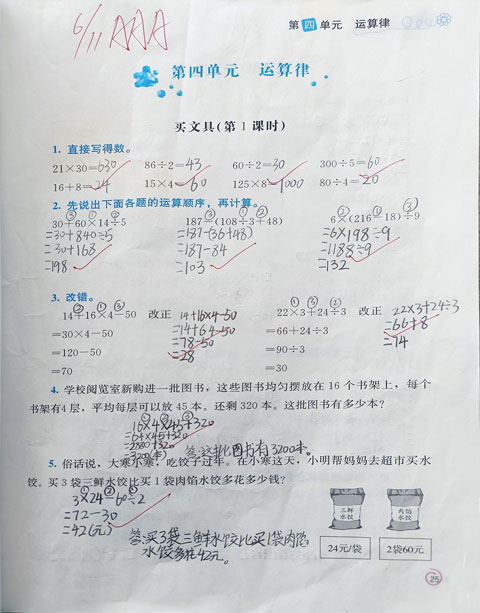 6/11 AAA
第四单元 运算律
第四单元 运算律
买文具(第1课时)
1. 直接写得数。
21×30=630 86÷2=43 60÷2=30 300÷5=60
16+8=24 15×4=60 125×8=1000 80÷4=20
2. 先说出下面各题的运算顺序,再计算。
③ ① ② ③ ① ② ② ① ③
30+60×14÷5 187-(108÷3+48) 6×(216-18)÷9
=30+840÷5 =187-(36+48) =6×198÷9
=30+168 =187-84 =1188÷9
=198 =103 =132
3. 改错。
② ① ③ ① ③ ②
14+16×4-50 改正 14+16×4-50 22×3+24÷3 改正 22×3+24÷3
=30×4-50 =14+64-50 =66+24÷3 =66+8
=120-50 =78-50 =90÷3 =74
=70 =28 =30
4. 学校阅览室新购进一批图书,这些图书均匀摆放在16个书架上,每个
书架有4层,平均每层可以放45本。还剩320本。这批图书有多少本?
① ② ③
16×4×45+320
=64×45+320
=2880+320
=3200(本) 答:这批图书有3200本。
5. 俗话说,大寒小寒,吃饺子过年。在小寒这天,小明帮妈妈去超市买水
饺。买3袋三鲜水饺比买1袋肉馅水饺多花多少钱?
① ③ ②
3×24-60÷2
=72-30
=42(元)
答:买3袋三鲜水饺比买1袋肉馅
水饺多花42元。
三鲜水饺 肉馅水饺
24元/袋 2袋60元
25